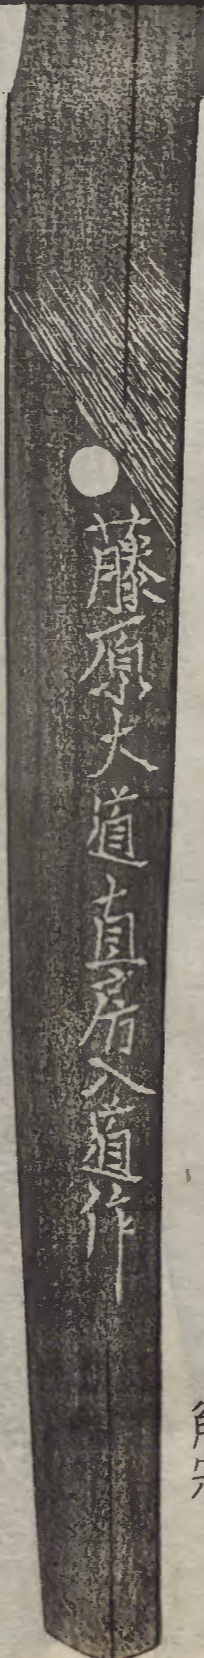 藤原大道直房入道作